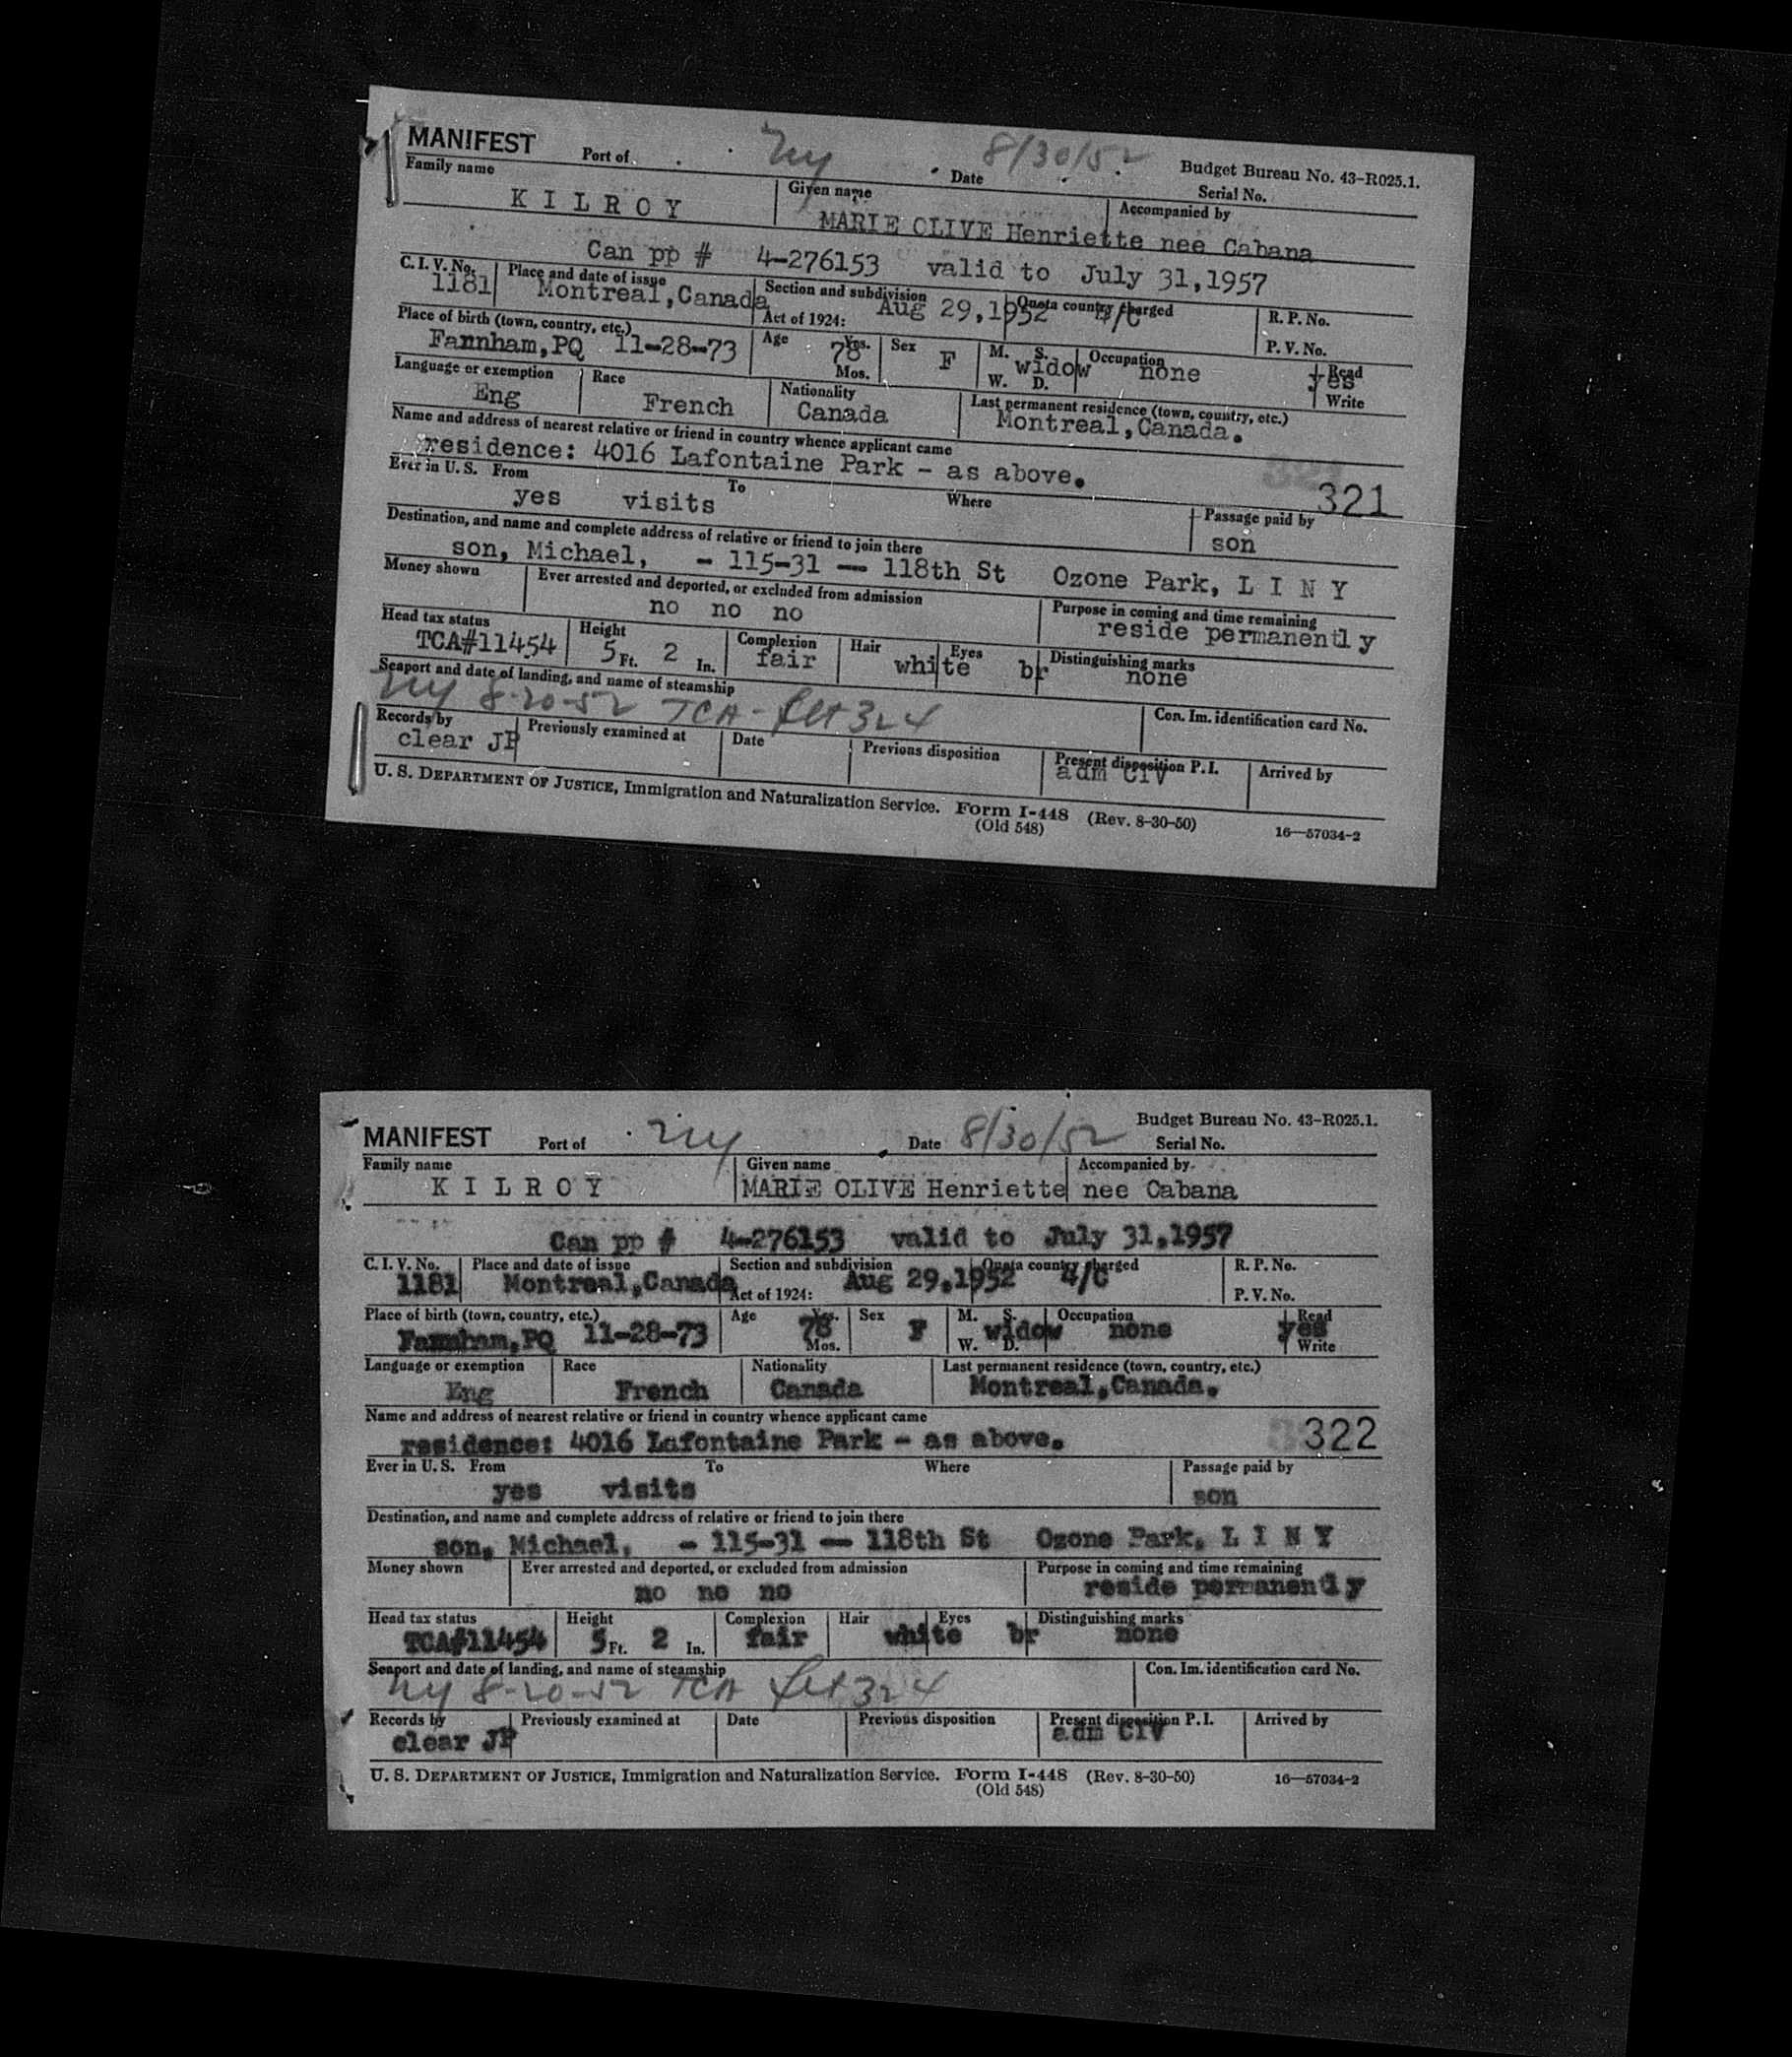 MANIFEST Port of NY Date 8/30/52 Budget Bureau No. 43-R025.1.
Serial No.
Family name Given name Accompanied by
KILROY MARIE OLIVE Henriette nee Cabana
Can pp # 4-276153 valid to July 31,1957
C. I. V. No. Place and date of issue Section and subdivision Quota country charged R. P. No.
1181 Montreal,Canada Aug 29,1952 4/C
Act of 1924: P. V. No.
Place of birth (town, country, etc.) Age Yrs. Sex M. S. Occupation Read
Farnham,PQ 11-28-73 78 F widow none yes
Mos. W. D. Write
Language or exemption Race Nationality Last permanent residence (town, country, etc.)
Eng French Canada Montreal,Canada.
Name and address of nearest relative or friend in country whence applicant came
residence: 4016 Lafontaine Park - as above.
321
Ever in U. S. From To Where Passage paid by
yes visits son
Destination, and name and complete address of relative or friend to join there
son, Michael, - 115-31 -- 118th St Ozone Park, L I N Y
Money shown Ever arrested and deported, or excluded from admission Purpose in coming and time remaining
no no no reside permanently
Head tax status Height Complexion Hair Eyes Distinguishing marks
TCA#11454 5 Ft. 2 In. fair white br none
Seaport and date of landing, and name of steamship Con. Im. identification card No.
NY 8-20-52 TCA - flt 324
Records by Previously examined at Date Previous disposition Present disposition P. I. Arrived by
clear JP adm CIV
U. S. DEPARTMENT OF JUSTICE, Immigration and Naturalization Service. Form I-448 (Rev. 8-30-50) 16—57034-2
(Old 548)
MANIFEST Port of NY Date 8/30/52 Budget Bureau No. 43-R025.1.
Serial No.
Family name Given name Accompanied by
KILROY MARIE OLIVE Henriette nee Cabana
Can pp # 4-276153 valid to July 31,1957
C. I. V. No. Place and date of issue Section and subdivision Quota country charged R. P. No.
1181 Montreal,Canada Aug 29,1952 4/C
Act of 1924: P. V. No.
Place of birth (town, country, etc.) Age Yrs. Sex M. S. Occupation Read
Farnham,PQ 11-28-73 78 F widow none yes
Mos. W. D. Write
Language or exemption Race Nationality Last permanent residence (town, country, etc.)
Eng French Canada Montreal,Canada.
Name and address of nearest relative or friend in country whence applicant came
322
residence: 4016 Lafontaine Park - as above.
Ever in U. S. From To Where Passage paid by
yes visits son
Destination, and name and complete address of relative or friend to join there
son, Michael, - 115-31 -- 118th St Ozone Park, L I N Y
Money shown Ever arrested and deported, or excluded from admission Purpose in coming and time remaining
no no no reside permanently
Head tax status Height Complexion Hair Eyes Distinguishing marks
TCA#11454 5 Ft. 2 In. fair white br none
Seaport and date of landing, and name of steamship Con. Im. identification card No.
NY 8-20-52 TCA flt 324
Records by Previously examined at Date Previous disposition Present disposition P. I. Arrived by
clear JP adm CIV
U. S. DEPARTMENT OF JUSTICE, Immigration and Naturalization Service. Form I-448 (Rev. 8-30-50) 16—57034-2
(Old 548)